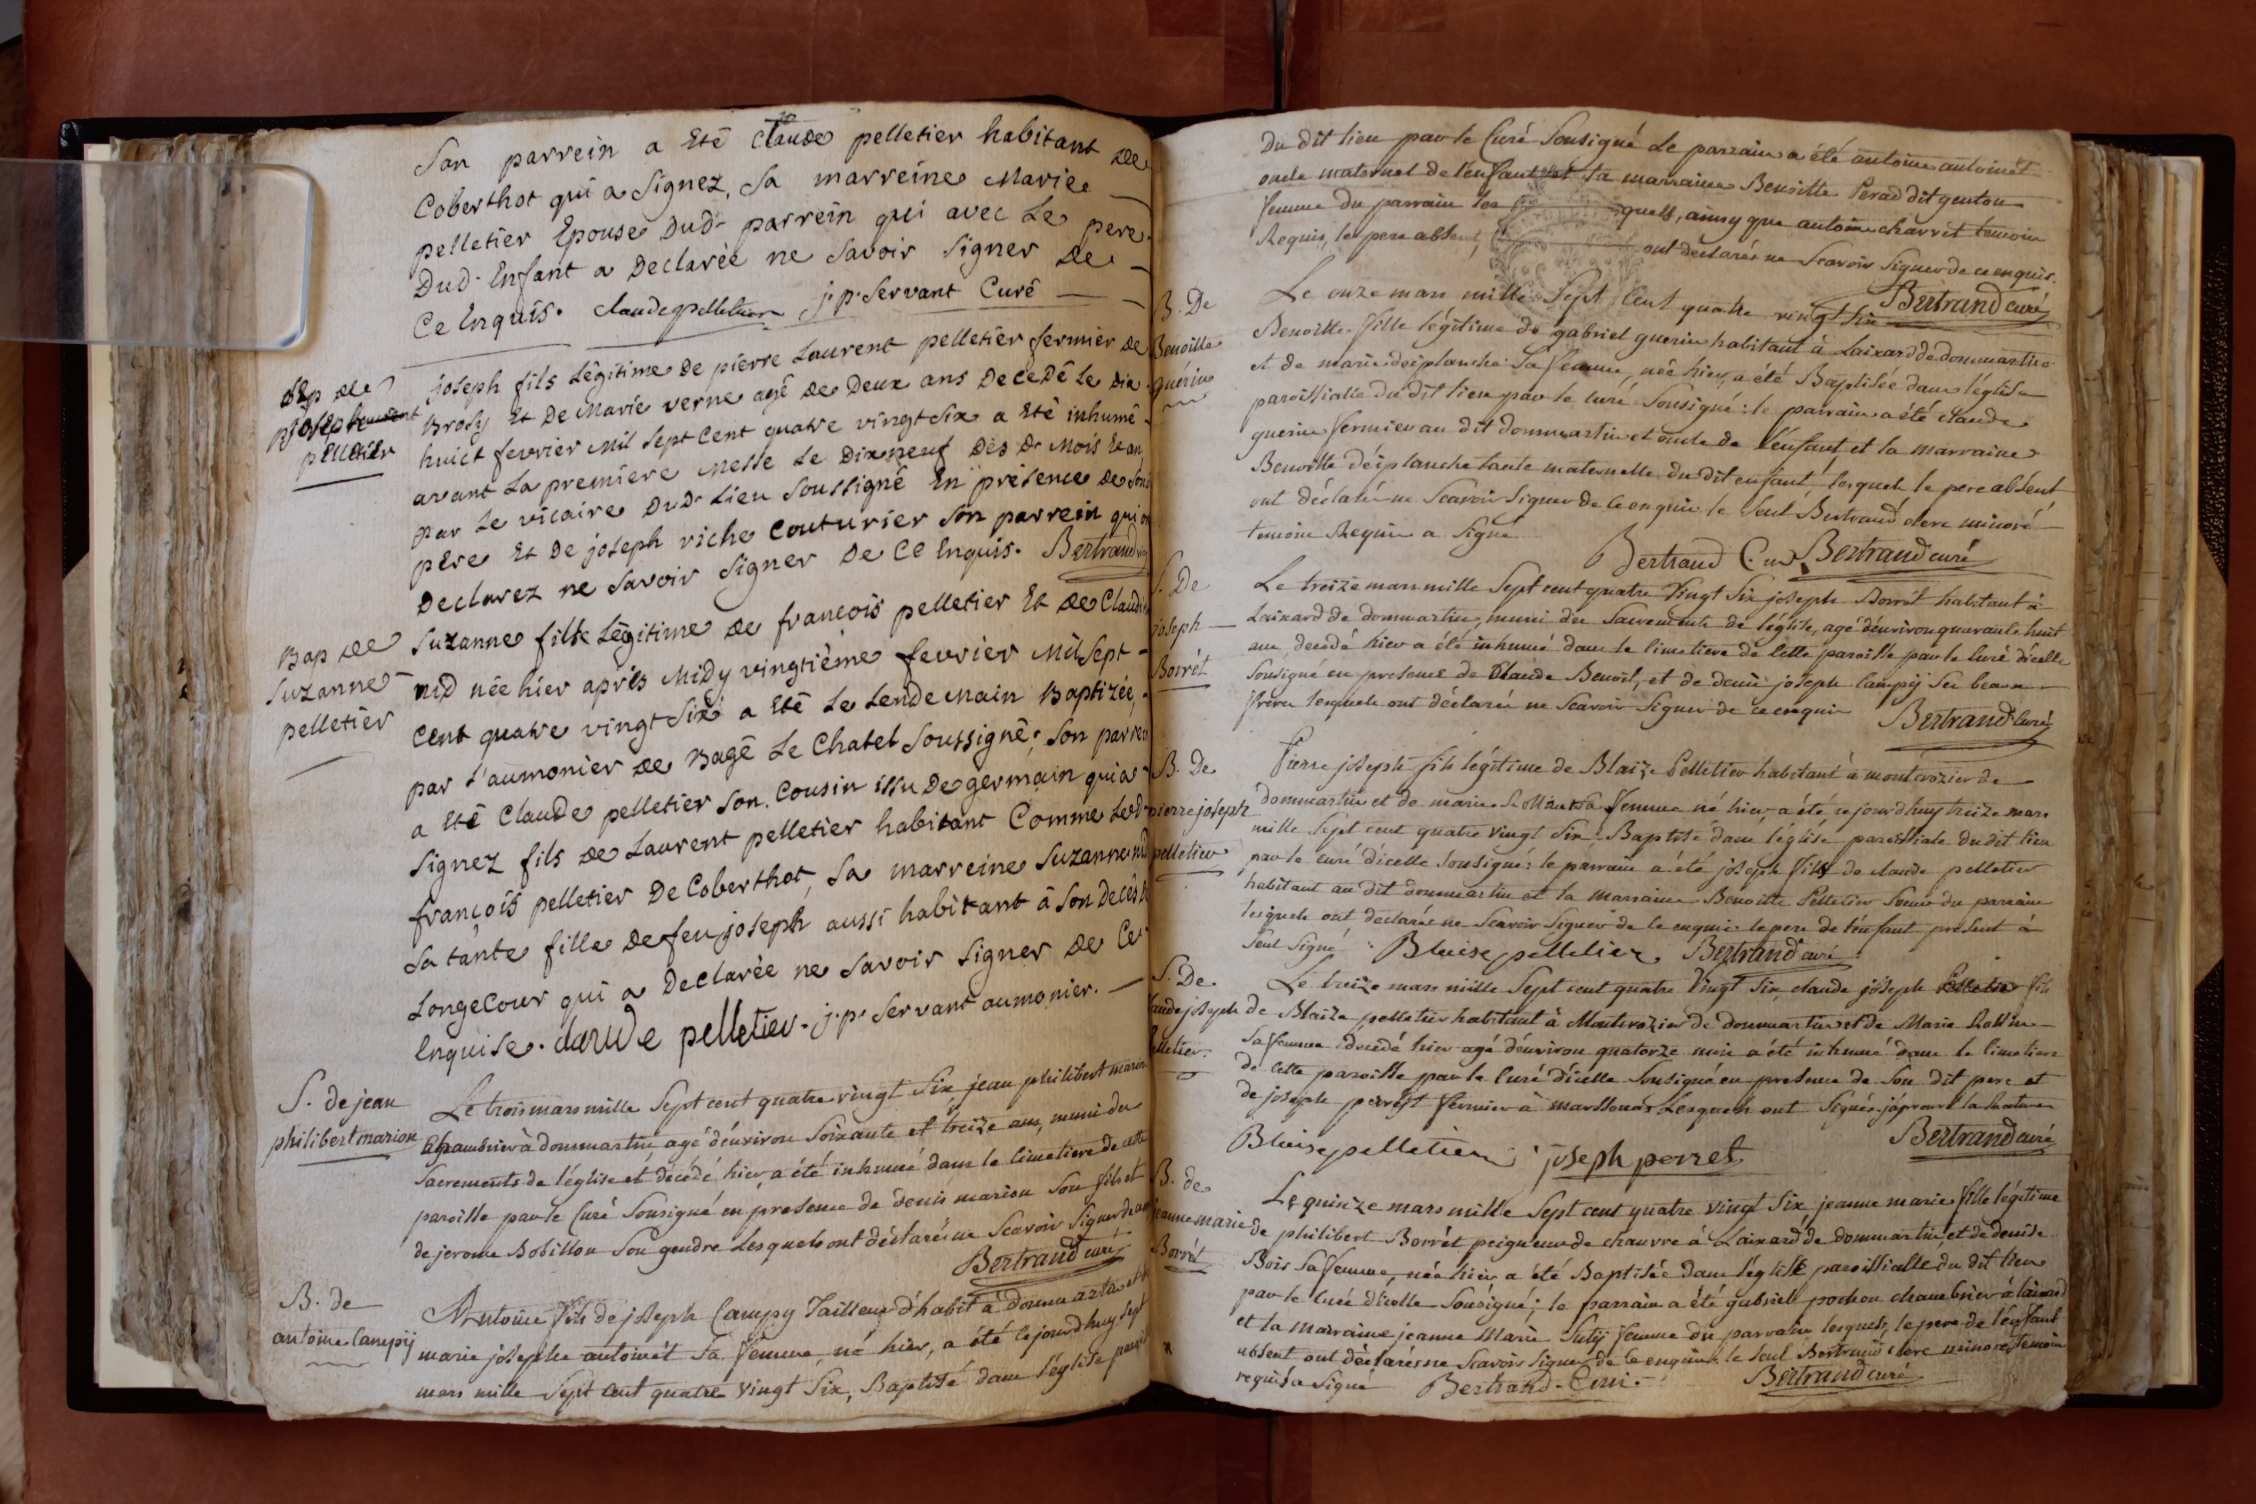 Son parrein a Eté Claude pelletier habitant de
Coberthot qui a Signez, Sa marreine Marie
pelletier Epouse Dud. parrein qui avec Le pere
Dud. Enfant a Declarée ne Savoir Signer de
Ce Enquis. claude pelletier j. p. Servant Curé
Sep de
Joseph
pelletier
joseph fils Légitime de pierre Laurent pelletier fermier de
Brosy Et De Marie verne agé de Deux ans Decedé Le Dix
huict fevrier Mil Sept Cent quatre vingt Six a Eté inhumé
avant La premiere Messe Le Dixneuf Des Dt. Mois Et an
par Le vicaire Dud. Lieu Soussigné En présence de Son
père Et De joseph viche Couturier Son parrein qui on
Declarez ne Savoir Signer De Ce Enquis. Bertrand
Bap de
Suzanne
pelletier
Suzanne fille Légitime de françois pelletier Et de Claudi
nid née hier après Midy vingtième fevrier Mil Sept
Cent quatre vingt Six a Eté Le Lendemain Baptizée,
par l'aumonier de Bagé Le Chatel Soussigné; Son parrei
a Eté Claude pelletier Son Cousin issu De germain qui a
Signez fils de Laurent pelletier habitant Comme Led.
françois pelletier De Coberthot, Sa marreine Suzanne nid
Sa tante fille De feu joseph aussi habitant à Son Decès
Longecour qui a Declarée ne Savoir Signer De Ce
Enquise. claude pelletier. j. p. Servant aumonier.
S. de jean
philibert marion
Le trois mars mille Sept cent quatre vingt Six, jean philibert marion
Chambrier à dommartin, agé d'environ Soixante et treize ans, muni des
Sacrements de l'église et décédé hier, a été inhumé dans le cimetiere de cette
paroisse par le Curé Sousigné en presence de denis marion Son fils et
de jerome Bobillon Son gendre Lesquels ont déclarés ne Scavoir Signer de ce
Bertrand curé
B. de
antoine Campij
Antoine fils de joseph Campy Tailleur d'habit à dommartin et de
marie josephe antoinét Sa femme, né hier, a été cejourd'huy sept
mars mille Sept cent quatre vingt Six, Baptisé dans l'église
du dit lieu par le Curé Sousigné Le parrain a été antoine antoinét
oncle maternel de l'enfant et Sa marraine Benoitte Perad dit genton
femme du parrain les quels, ainsy que antoine charrét témoin
Requis, le pere absent, ont déclarés ne Scavoir Signer de ce enquis.
Bertrand curé
B. De
Benoitte
guérin
Le onze mars mille Sept Cent quatre vingt Six
Benoitte fille légitime de gabriel guerin habitant à Laixard de dommartin
et de marie deiplanche Sa femme, née hier, a été Baptisée dans l'église
paroissialle du dit lieu par le curé Sousigné: le parrain a été claude
guerin fermier au dit dommartin et oncle de l'enfant et la marraine
Benoitte déiplanche tante maternelle du dit enfant, lesquels le pere absént
ont déclarés ne Scavoir Signer de ce enquis le Seul Bertrand clerc minoré
temoin Requis a Signé
Bertrand C. m. Bertrand curé
S. De
joseph
Borrét
Le treize mars mille Sept cent quatre Vingt Six joseph Borrét habitant à
Laixard de dommartin, muni des Sacrements de l'église, agé d'environ quarante huit
ans, decédé hier a été inhumé dans le cimetiere de cette paroisse par le Curé d'icelle
Sousigné en presence de Claude Benoit, et de denis joseph Campij Ses beaux
freres lesquels ont déclarés ne Scavoir Signer de ce enquis Bertrand Curé
B. De
pierre joseph
pelletier
Pierre joseph fils légitime de Blaize Pelletier habitant à montcrozier de
dommartin et de marie Rollin Sa femme né hier, a été cejourd'huy treize mars
mille Sept cent quatre Vingt Six Baptisé dans l'église paroissiale du dit lieu
par le curé d'icelle Sousigné: le parrain a été joseph fils de claude pelletier
habitant au dit dommartin et la marraine Benoitte Pelletier Soeur du parrain
lesquels ont declarés ne Scavoir Signer de ce enquis: le pere de l'enfant présent à
Seul Signé. Blaise pelletier Bertrand curé
S. De
claude joseph
Pelletier.
Le treize mars mille Sept cent quatre Vingt Six, claude joseph Pelletier fils
de Blaize pelletier habitant à Montcrozier de dommartin et de Marie Rollin
Sa femme decédé hier agé d'environ quatorze mois a été inhumé dans le cimetiere
de cette paroisse par le Curé d'icelle Sousigné en presence de Son dit pere et
de joseph perrét fermier à marssonas Lesquels ont Signés j'áprouve la rature
Bertrand curé
Blaise pelletier joseph perret
B. de
jeanne marie
Borrét
Le quinze mars mille Sept cent quatre vingt Six jeanne marie fille légitime
de philibert Borrét peigneur de chanvre à Laixard de dommartin, et de denise
Bois Sa femme, née hier, a été Baptisée dans l'église paroissialle du dit lieu
par le Curé d'icelle Sousigné; le parrain a été gabriel pochon chambrier à laixard
et la marraine jeanne Marie Sutij femme du parrain lesquels, le pere de l'enfant
absent ont déclarés ne Scavoir Signer de ce enquis: le Seul Bertrand clerc minoré, temoin
requis a Signé Bertrand. C. m. Bertrand curé